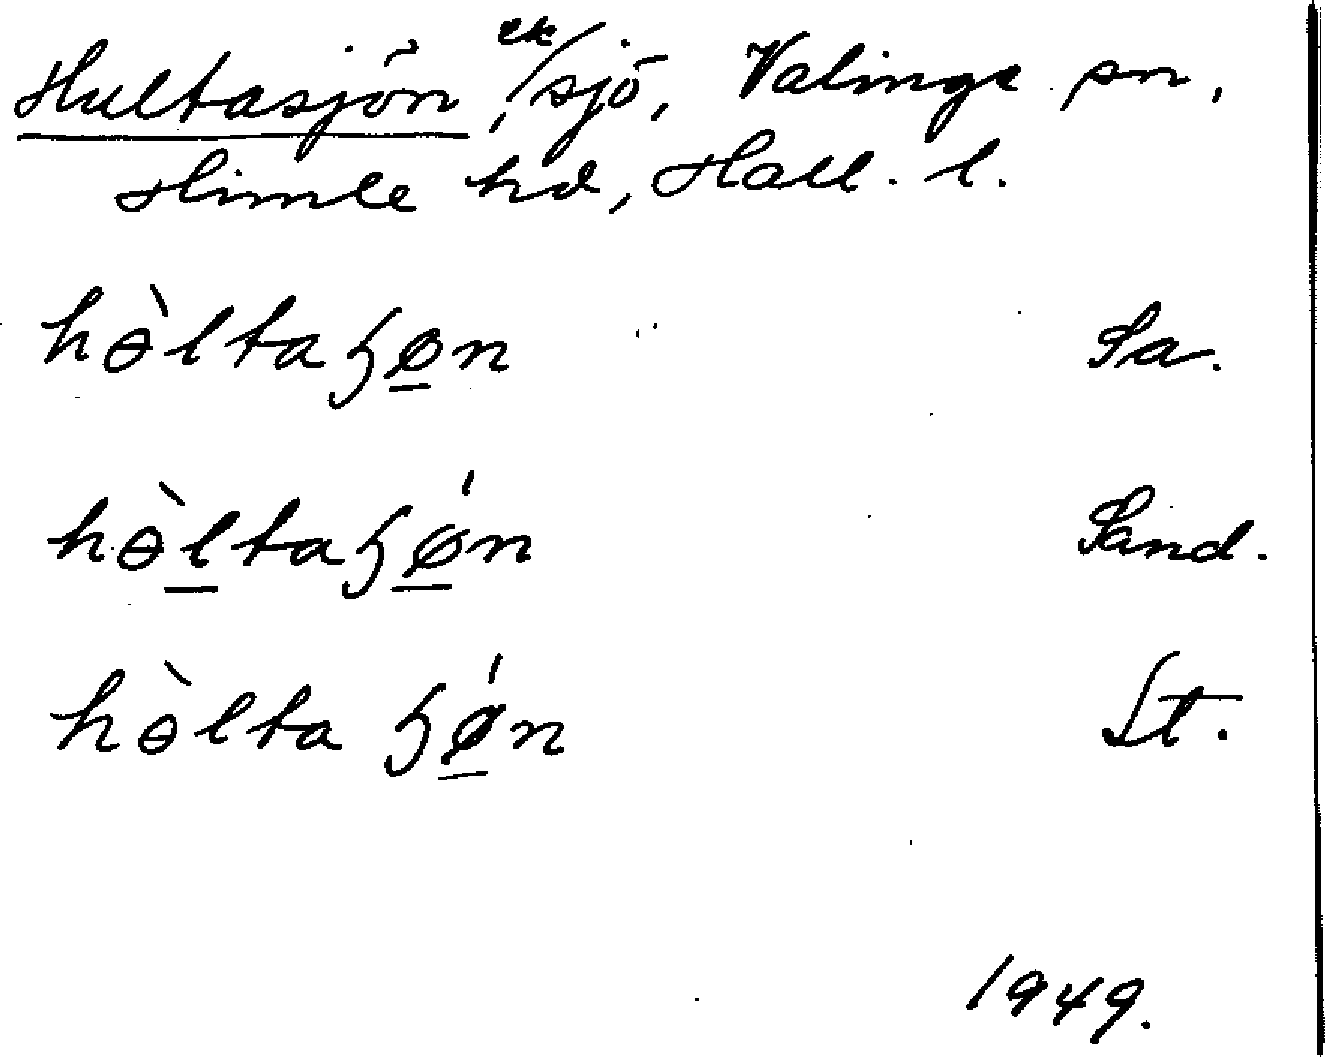 Hultasjön, ek/sjö, Valinge sn,
Himle hd, Hall. l.
hɵ̀ltaɧø̲n Sa.
hɵ̀l̲taɧǿ̲n Sand.
hɵ̀lta ɧǿ̲n St.
1949.